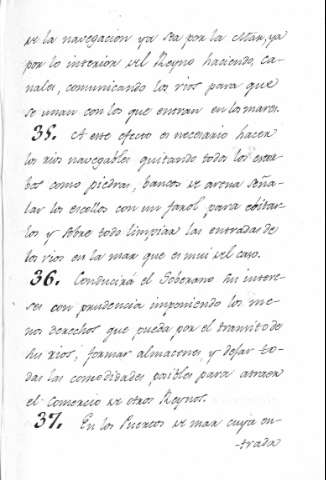 de la navegacion ya sea por la Mar, ya
por lo interior del Reyno haciendo, ca-
nales, comunicando los rios para que
se unan con los que entran en los mares.
35. A este efecto es necesario hacer
los rios navegables quitando todos los estor-
bos como piedras, bancos de arena seña-
lar los escollos con un farol, para evitar-
los y sobre todo limpiar las entradas de
los rios en la mar que es mui del caso.
36. Conducirá el Soberano sus intere-
ses con prudencia imponiendo los me-
nos derechos que pueda por el transito de
sus rios, formar almacenes, y dejar to-
das las comodidades posibles para atraer
el Comercio de otros Reynos.
37. En los Puertos de mar cuya en-
-trada